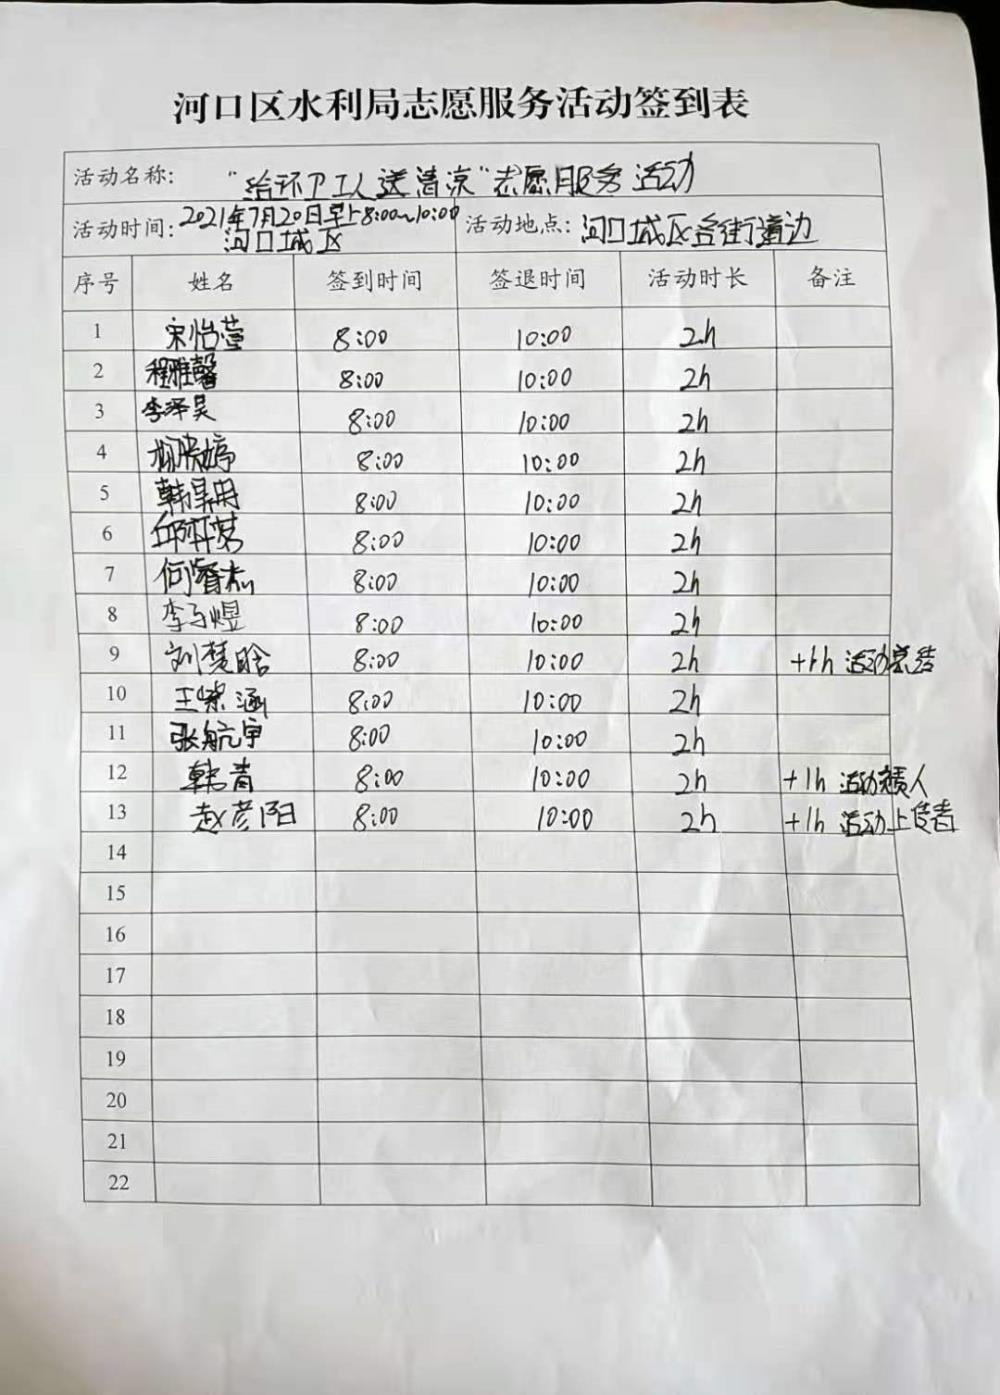 河口区水利局志愿服务活动签到表
活动名称: "给环卫工人送清凉"志愿服务活动
活动时间: 2021年7月20日早上8:00~10:00 活动地点: 河口城区各街道边
河口城区
序号 姓名 签到时间 签退时间 活动时长 备注
1 宋怡萱 8:00 10:00 2h
2 程雅馨 8:00 10:00 2h
3 李泽昊 8:00 10:00 2h
4 8:00 10:00 2h
5 韩昊 8:00 10:00 2h
6 邱轩茗 8:00 10:00 2h
7 何睿 8:00 10:00 2h
8 李 煜 8:00 10:00 2h
9 刘梦晗 8:00 10:00 2h +1h 活动总结
10 王 涵 8:00 10:00 2h
11 张航宇 8:00 10:00 2h
12 韩青 8:00 10:00 2h +1h 活动负责人
13 赵彦阳 8:00 10:00 2h +1h 活动上传者
14
15
16
17
18
19
20
21
22